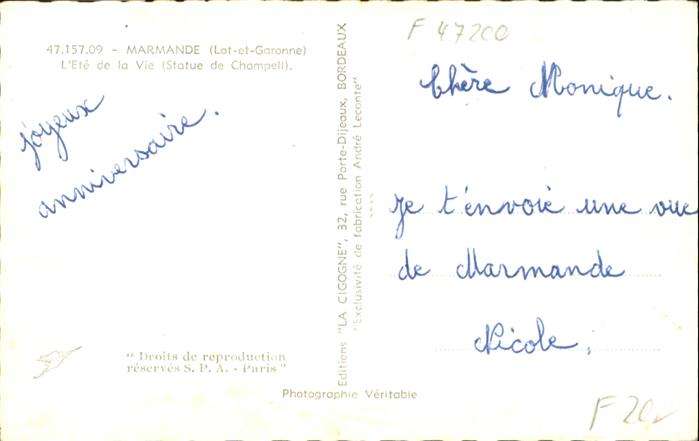 47.157.09 - MARMANDE (Lot-et-Garonne)
L'Eté de la Vie (Statue de Champeil).
joyeux
anniversaire.
"Droits de reproduction
réservés S. P. A. - Paris"
Editions "LA CIGOGNE", 32, rue Porte-Dijeaux, BORDEAUX
"Exclusivité de fabrication André Leconte"
Photographie Véritable
F 47200
Chère Monique.
je t'envoie une vue
de Marmande
Nicole.
F 20